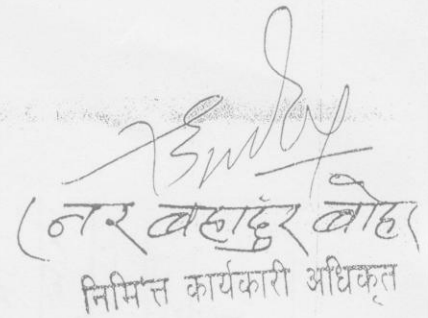 (नर बहादुर बोहरा
निमित्त कार्यकारी अधिकृत